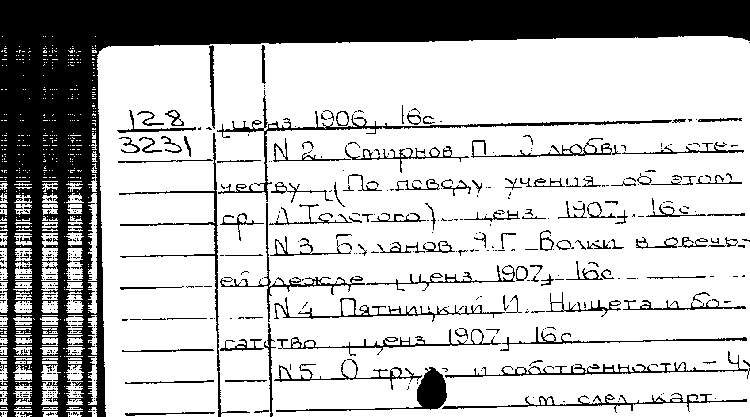 128 [ценз 1906]. 16с.
3231 N 2. Смирнов, П. О любви к оте-
честву. [(По поводу учения об этом
гр. Л. Толстого). ценз 1907]. 16с.
N 3 Буланов, Я.Г. Волки в овечь-
ей одежде. [ценз. 1907]. 16с.
N 4 Пятницкий, И. Нищета и бо-
гатство [ценз 1907]. 16с.
N 5. О труде и собственности. -
см. след. карт.